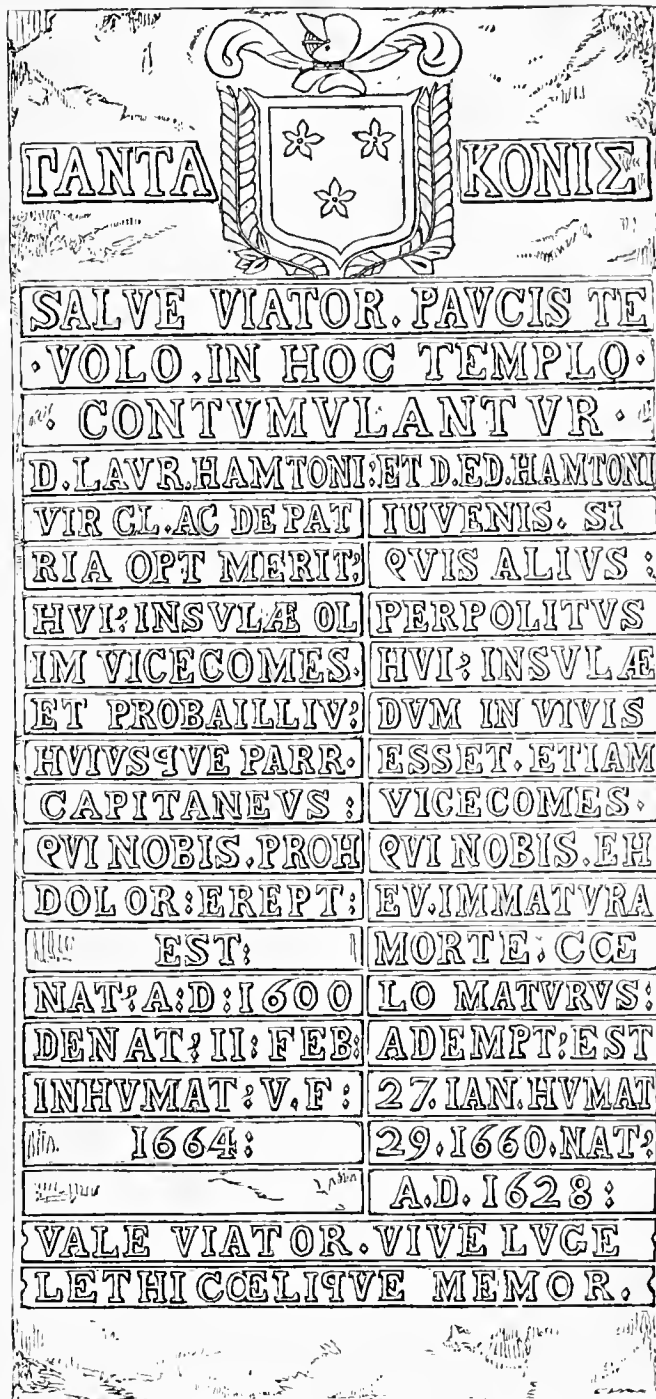 ΓΑΝΤΑ ΚΟΝΙΣ
SALVE VIATOR. PAVCIS TE
·VOLO.IN HOC TEMPLO·
· CONTVMVLANTVR ·
D.LAVR.HAMTONI:ET D.ED.HAMTONI
VIR CL.AC DE PAT
RIA OPT MERIT;
HVI; INSVLÆ OL
IM VICECOMES.
ET PROBAILLIV;
HVIVSqVE PARR.
CAPITANEVS :
QVI NOBIS.PROH
DOLOR:EREPT:
EST:
NAT; A:D:1600
DENAT; II: FEB:
INHVMAT; V.F:
1664:
IUVENIS. SI
QVIS ALIVS :
PERPOLITVS
HVI; INSVLÆ
DVM IN VIVIS
ESSET. ETIAM
VICECOMES.
QVI NOBIS.EH
EV.IMMATVRA
MORTE: CŒ
LO MATVRVS:
ADEMPT; EST
27.IAN.HVMAT
29.1660.NAT;
A.D. 1628:
VALE VIATOR.VIVE LVCE
LETHI CŒLIqVE MEMOR.